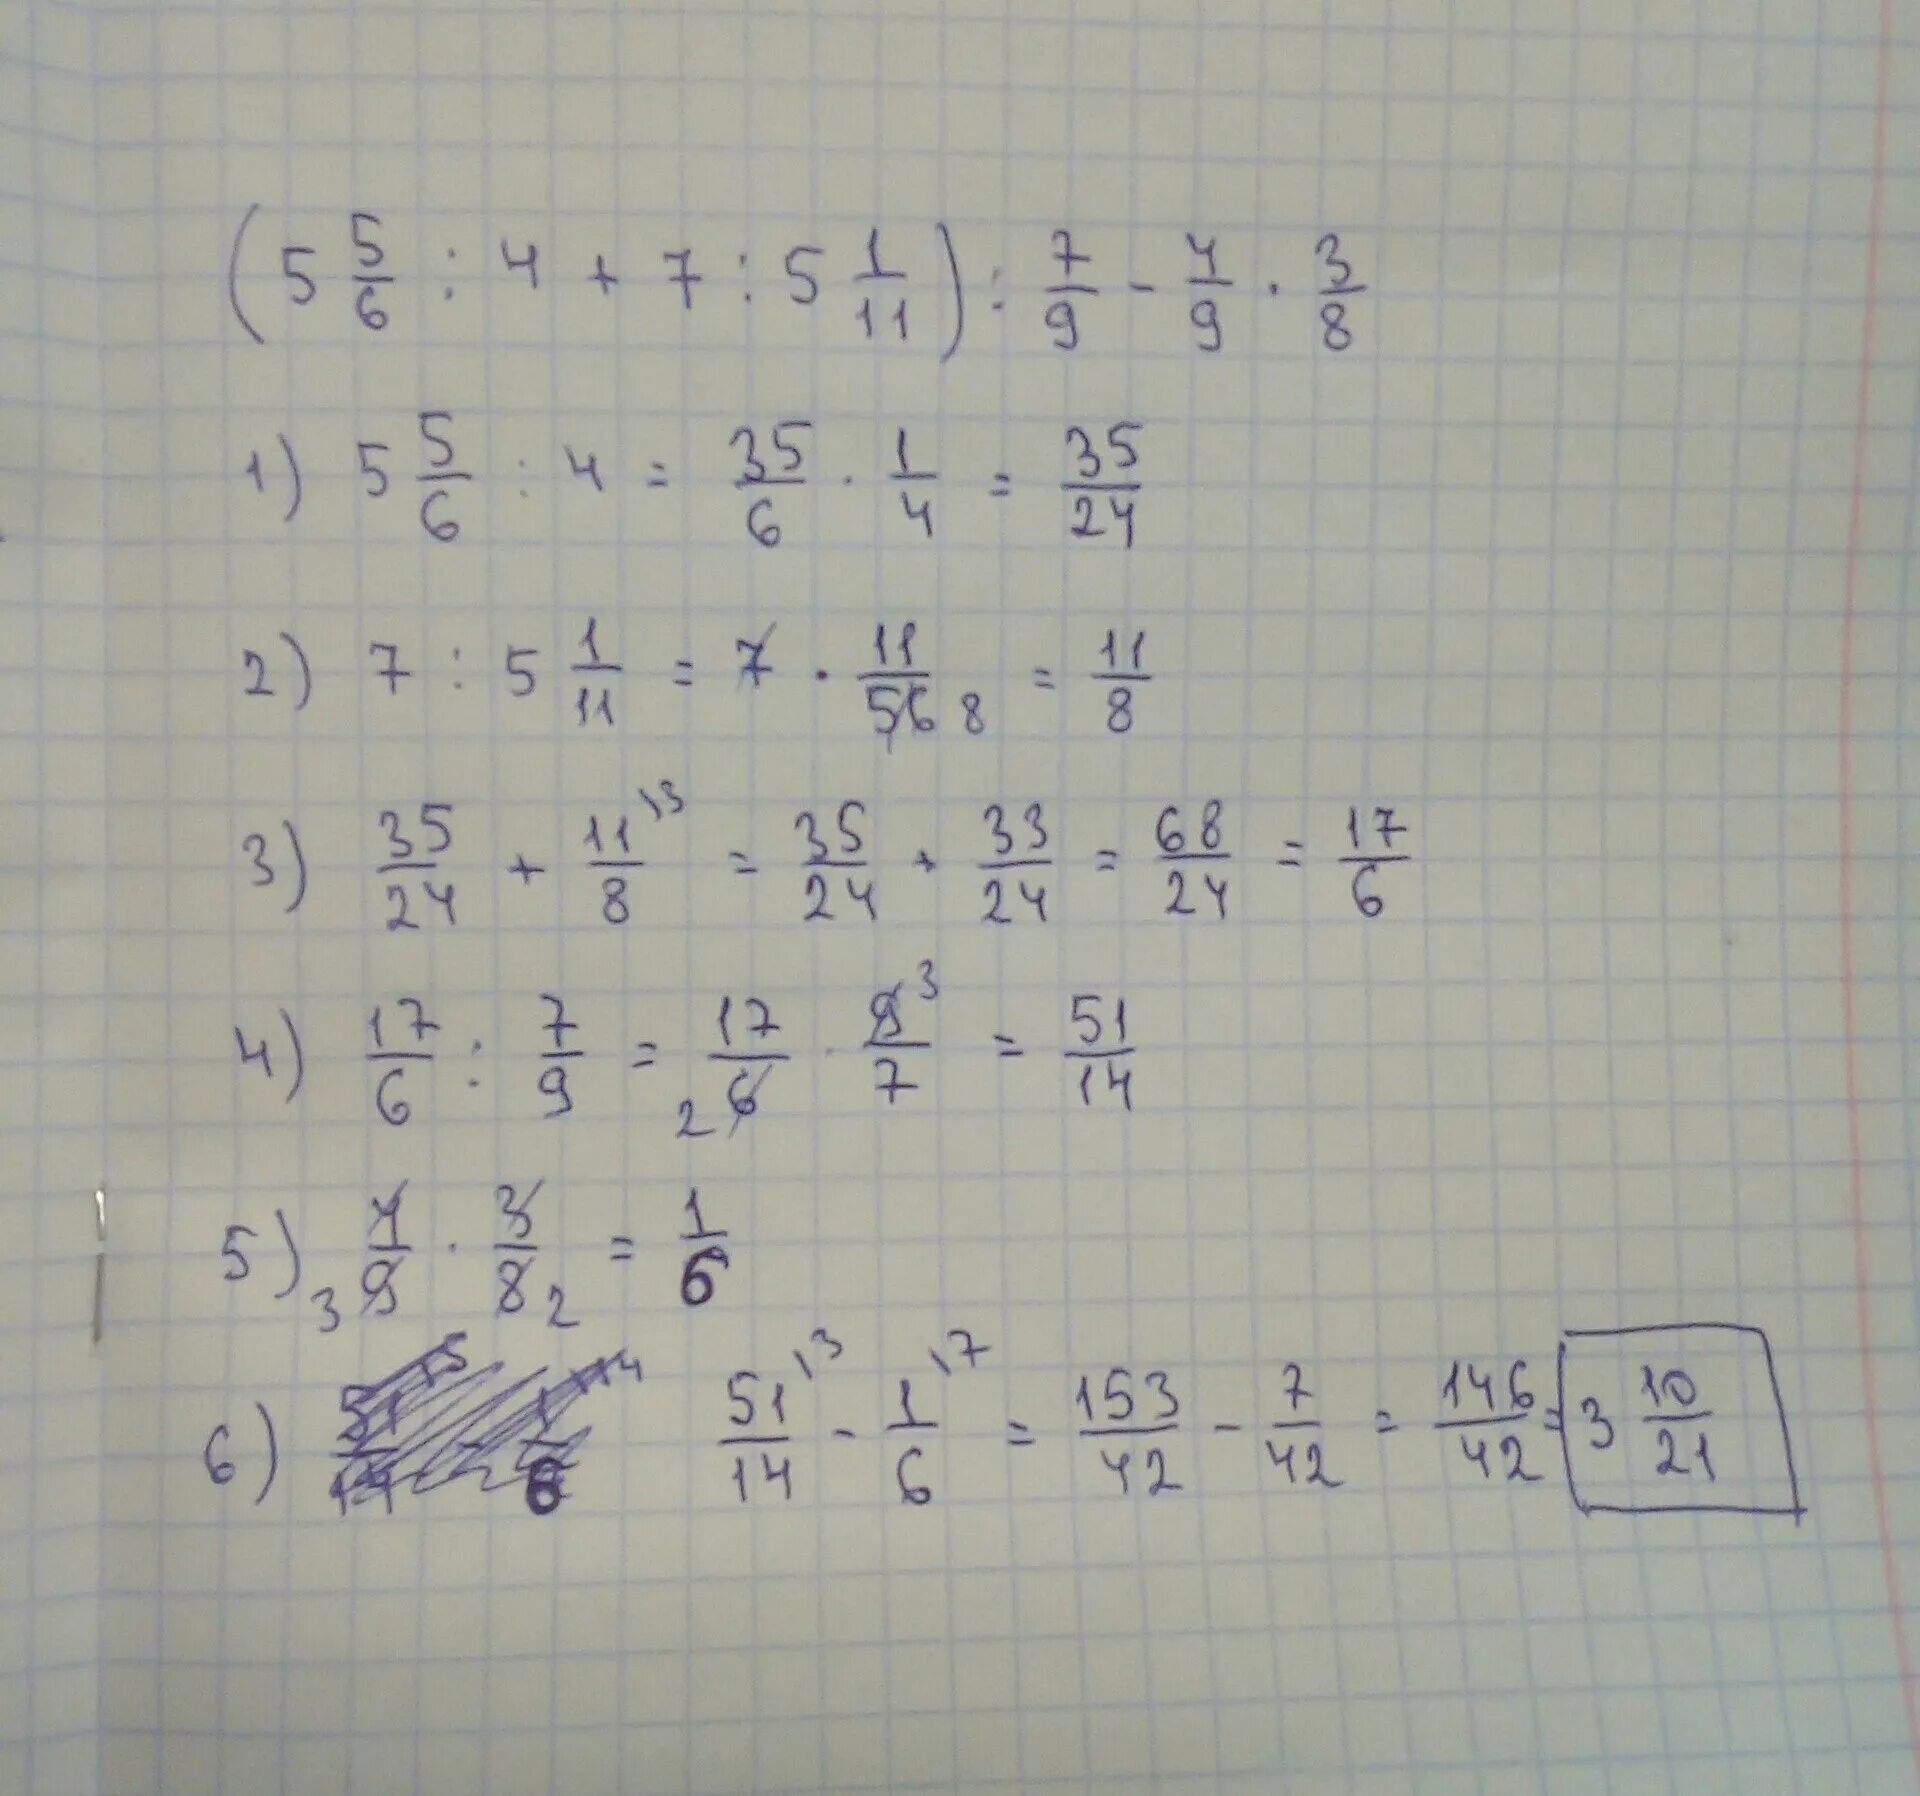 (5 5/6 : 4 + 7 : 5 1/11) : 7/9 - 4/9 · 3/8
1) 5 5/6 : 4 = 35/6 · 1/4 = 35/24
2) 7 : 5 1/11 = 7 · 11/56 8 = 11/8
3) 35/24 + 11/8 \3 = 35/24 + 33/24 = 68/24 = 17/6
4) 17/6 : 7/9 = 17/6 2 · 9/7 3 = 51/14
5) 3 4/9 · 3/8 2 = 1/6
6) 51/14 \3 - 1/6 \7 = 153/42 - 7/42 = 146/42 = 3 10/21